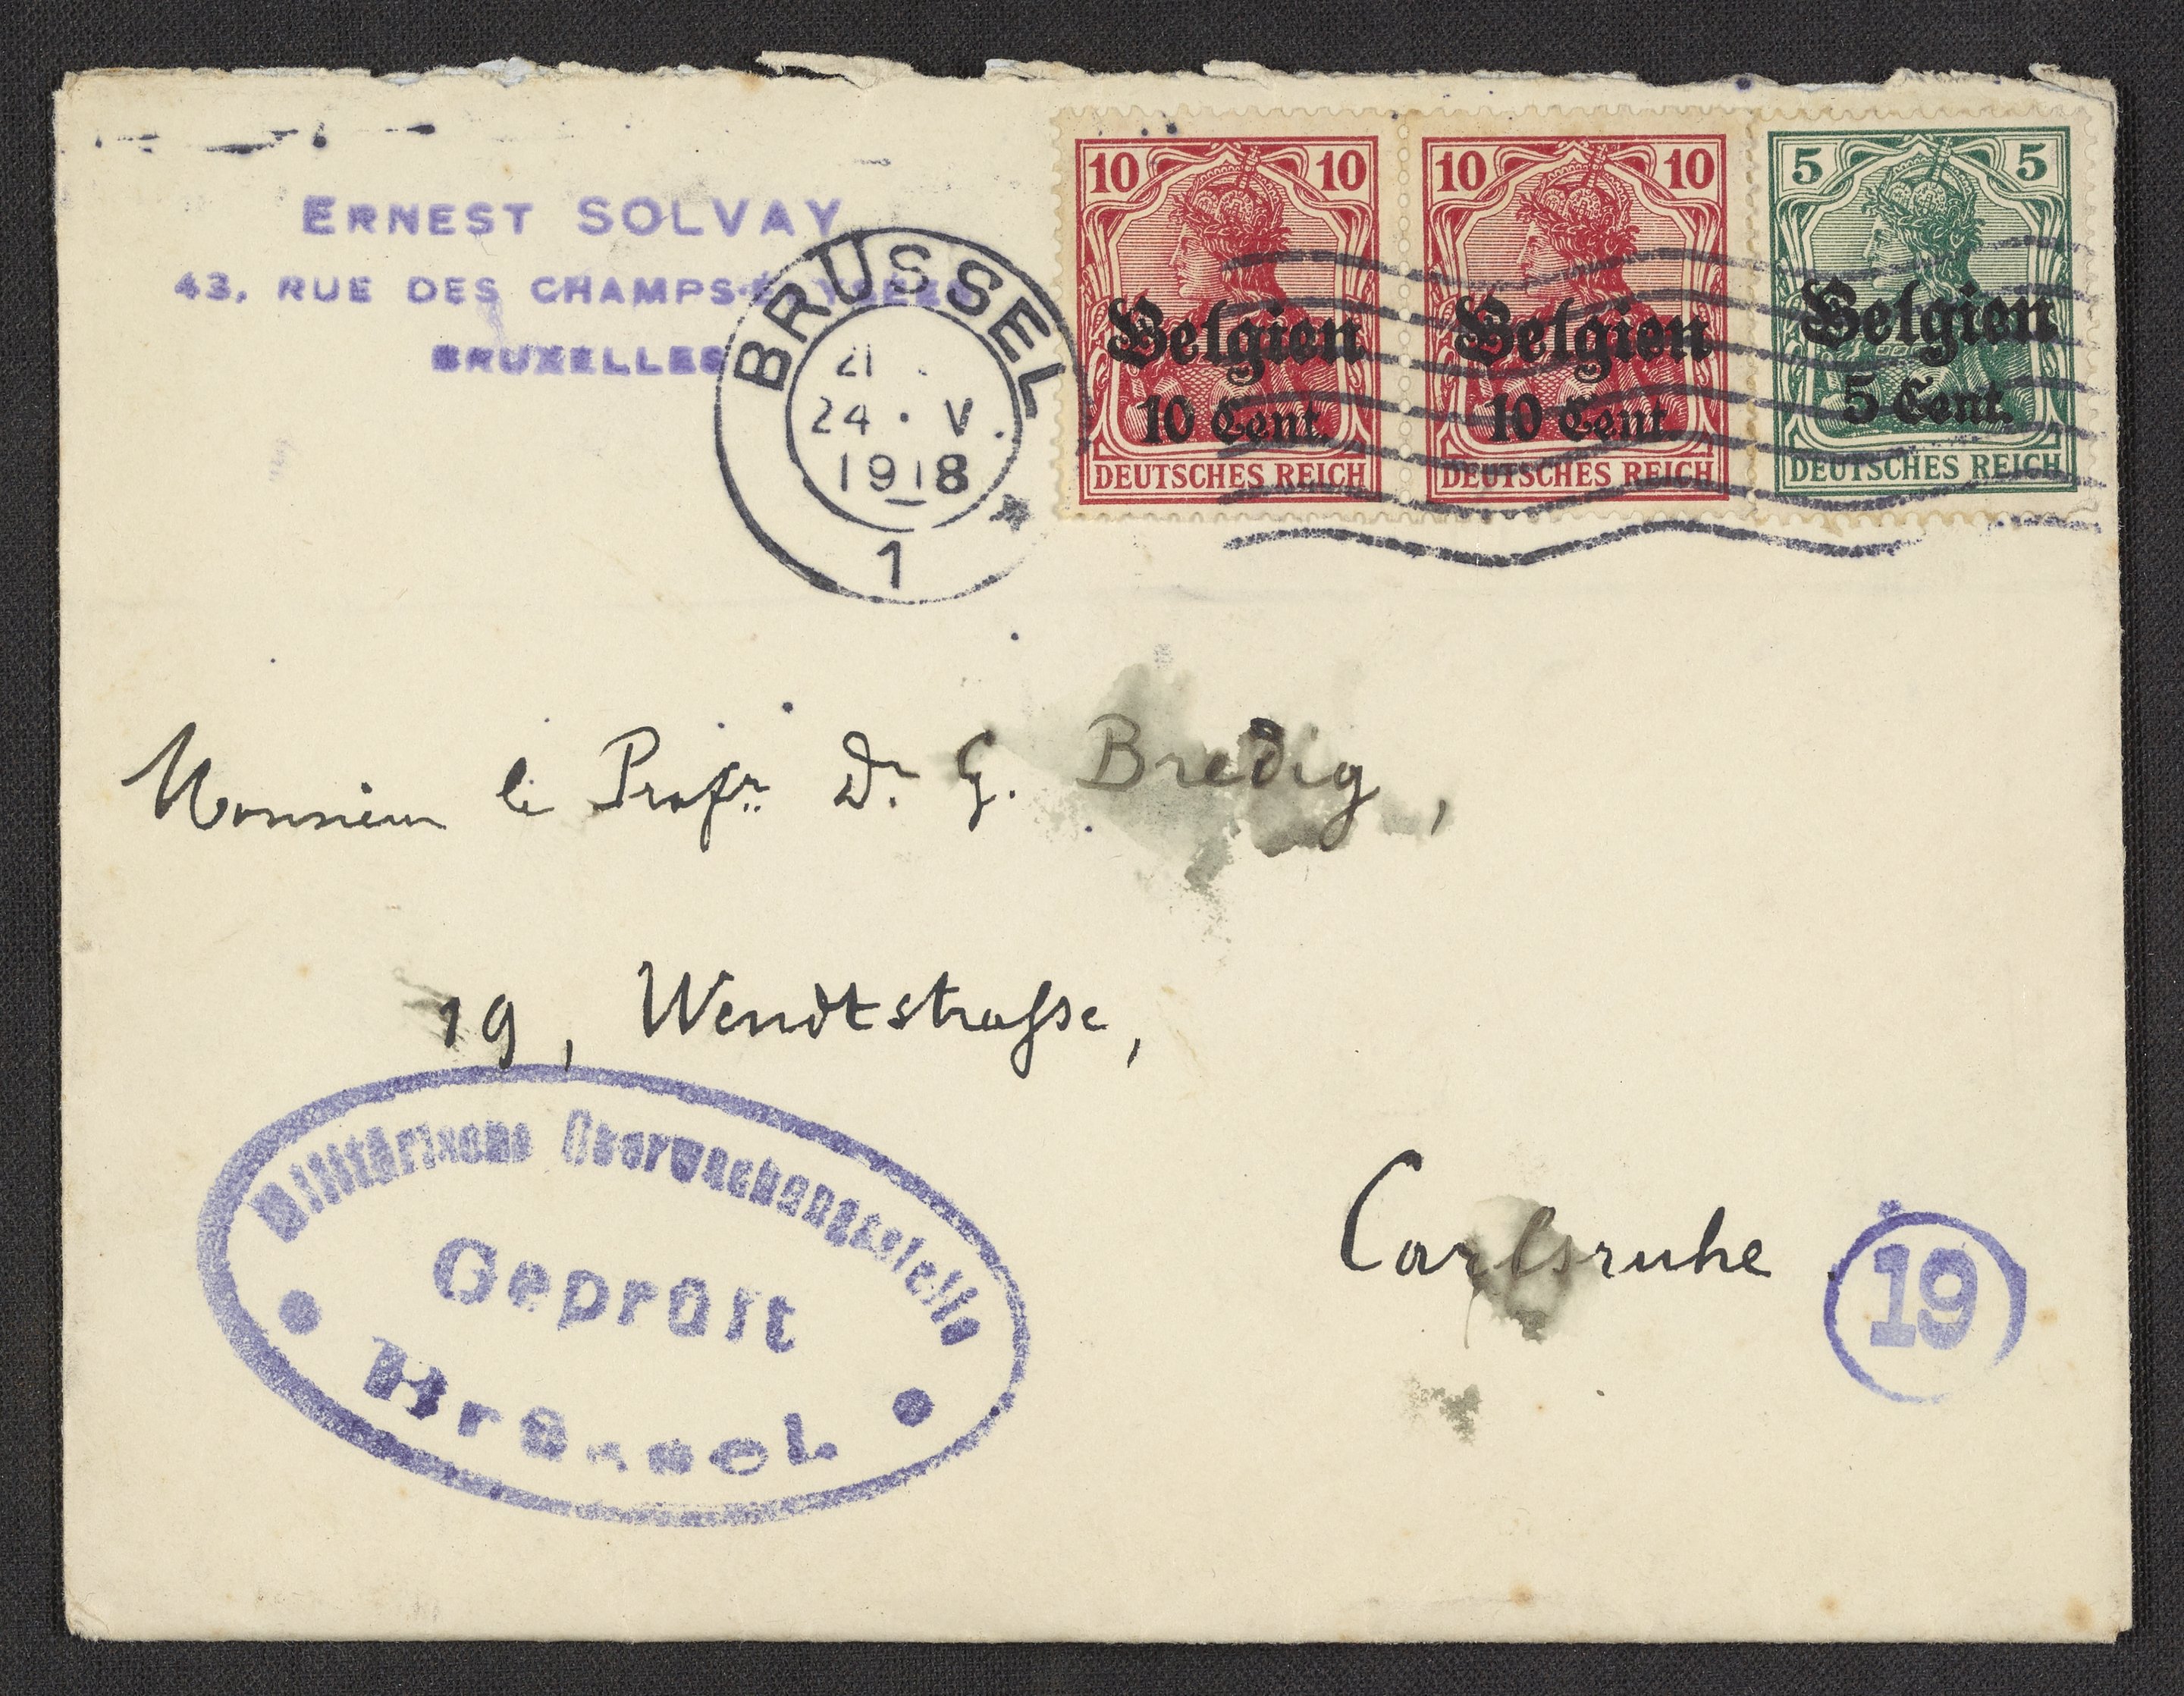 ERNEST SOLVAY
43, RUE DES CHAMPS-ÉLYSÉES
BRUXELLES
BRÜSSEL
21
24 · V.
1918
1
10 10
Belgien
10 Cent.
DEUTSCHES REICH
10 10
Belgien
10 Cent.
DEUTSCHES REICH
5 5
Belgien
5 Cent.
DEUTSCHES REICH
Monsieur le Profr. Dr. G. Bredig,
19, Wendtstrasse,
Carlsruhe
19
Militärische Überwachungsstelle
Geprüft
Brüssel